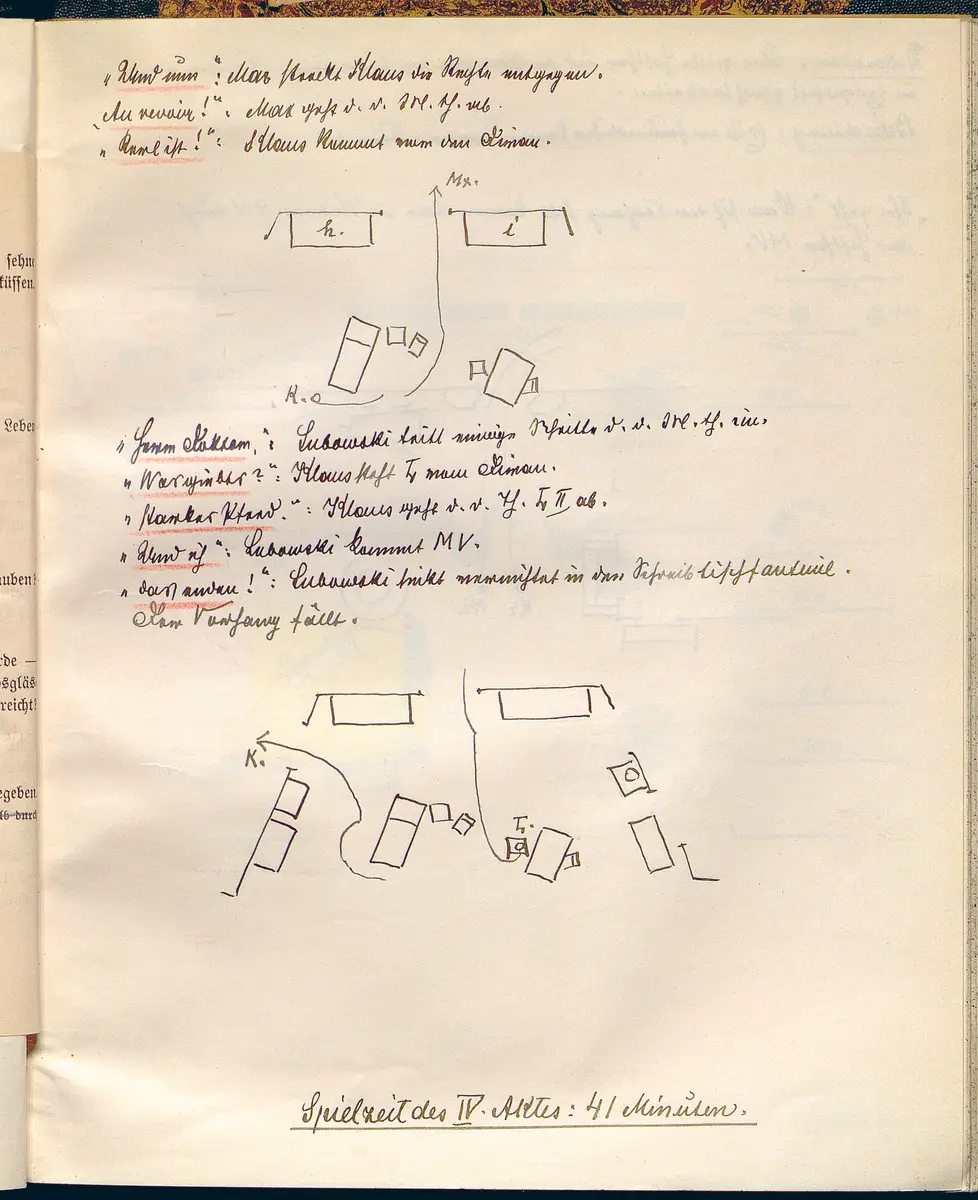 „Und nun“: Max streckt Klaus die Rechte entgegen.
„Au revoir!“: Max geht d. d. M. th. ab.
„Kerl ist!“: Klaus kommt vor den Divan.
Mx.
h.
i
K.
„Herrn Doktor,“: Lubowski tritt einige Schritte d. d. M. th. ein.
„Was giebts?“: Klaus steht L vom Divan.
„starkes Pferd.“: Klaus geht d. d. Th. L II ab.
„Und ich“: Lubowski kommt M V.
„das enden!“: Lubowski sinkt vernichtet in den Schreibtischfauteuil.
Der Vorhang fällt.
K.
L.
Spielzeit des IV. Aktes: 41 Minuten.
sehne
küssen.
Leben
auben?
rde —
reicht?
egeben.